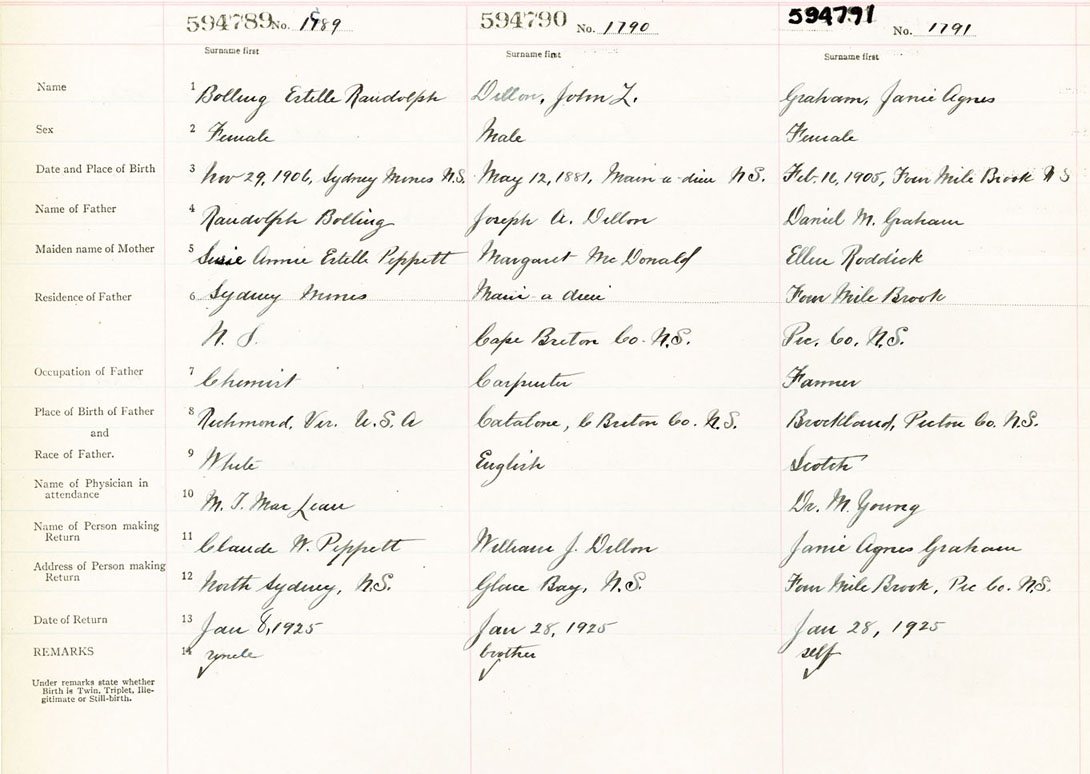 594789 No. 1789 594790 No. 1790 594791 No. 1791
Surname first Surname first Surname first
Name 1 Bolling Estelle Randolph Dillon, John L. Graham, Janie Agnes
Sex 2 Female Male Female
Date and Place of Birth 3 Nov 29, 1906, Sydney Mines N.S. May 12, 1881, Main a-dieu N.S. Feb. 16, 1905, Four Mile Brook N S
Name of Father 4 Randolph Bolling Joseph A. Dillon Daniel M. Graham
Maiden name of Mother 5 Susie Annie Estelle Peppett Margaret McDonald Ellen Roddick
Residence of Father 6 Sydney Mines Main-a-dieu Four Mile Brook
N. S. Cape Breton Co. N.S. Pic. Co. N.S.
Occupation of Father 7 Chemist Carpenter Farmer
Place of Birth of Father 8 Richmond, Vir. U.S.A Catalone, C Breton Co. N.S. Brookland, Pictou Co. N.S.
and
Race of Father. 9 White English Scotch
Name of Physician in
attendance 10 M. T. MacLean Dr. M. Young
Name of Person making
Return 11 Claude W. Peppett William J. Dillon Janie Agnes Graham
Address of Person making
Return 12 North Sydney, N.S. Glace Bay, N.S. Four Mile Brook, Pic Co. N.S.
Date of Return 13 Jan 8, 1925 Jan 28, 1925 Jan 28, 1925
REMARKS 14 uncle brother self
Under remarks state whether
Birth is Twin, Triplet, Ille-
gitimate or Still-birth.